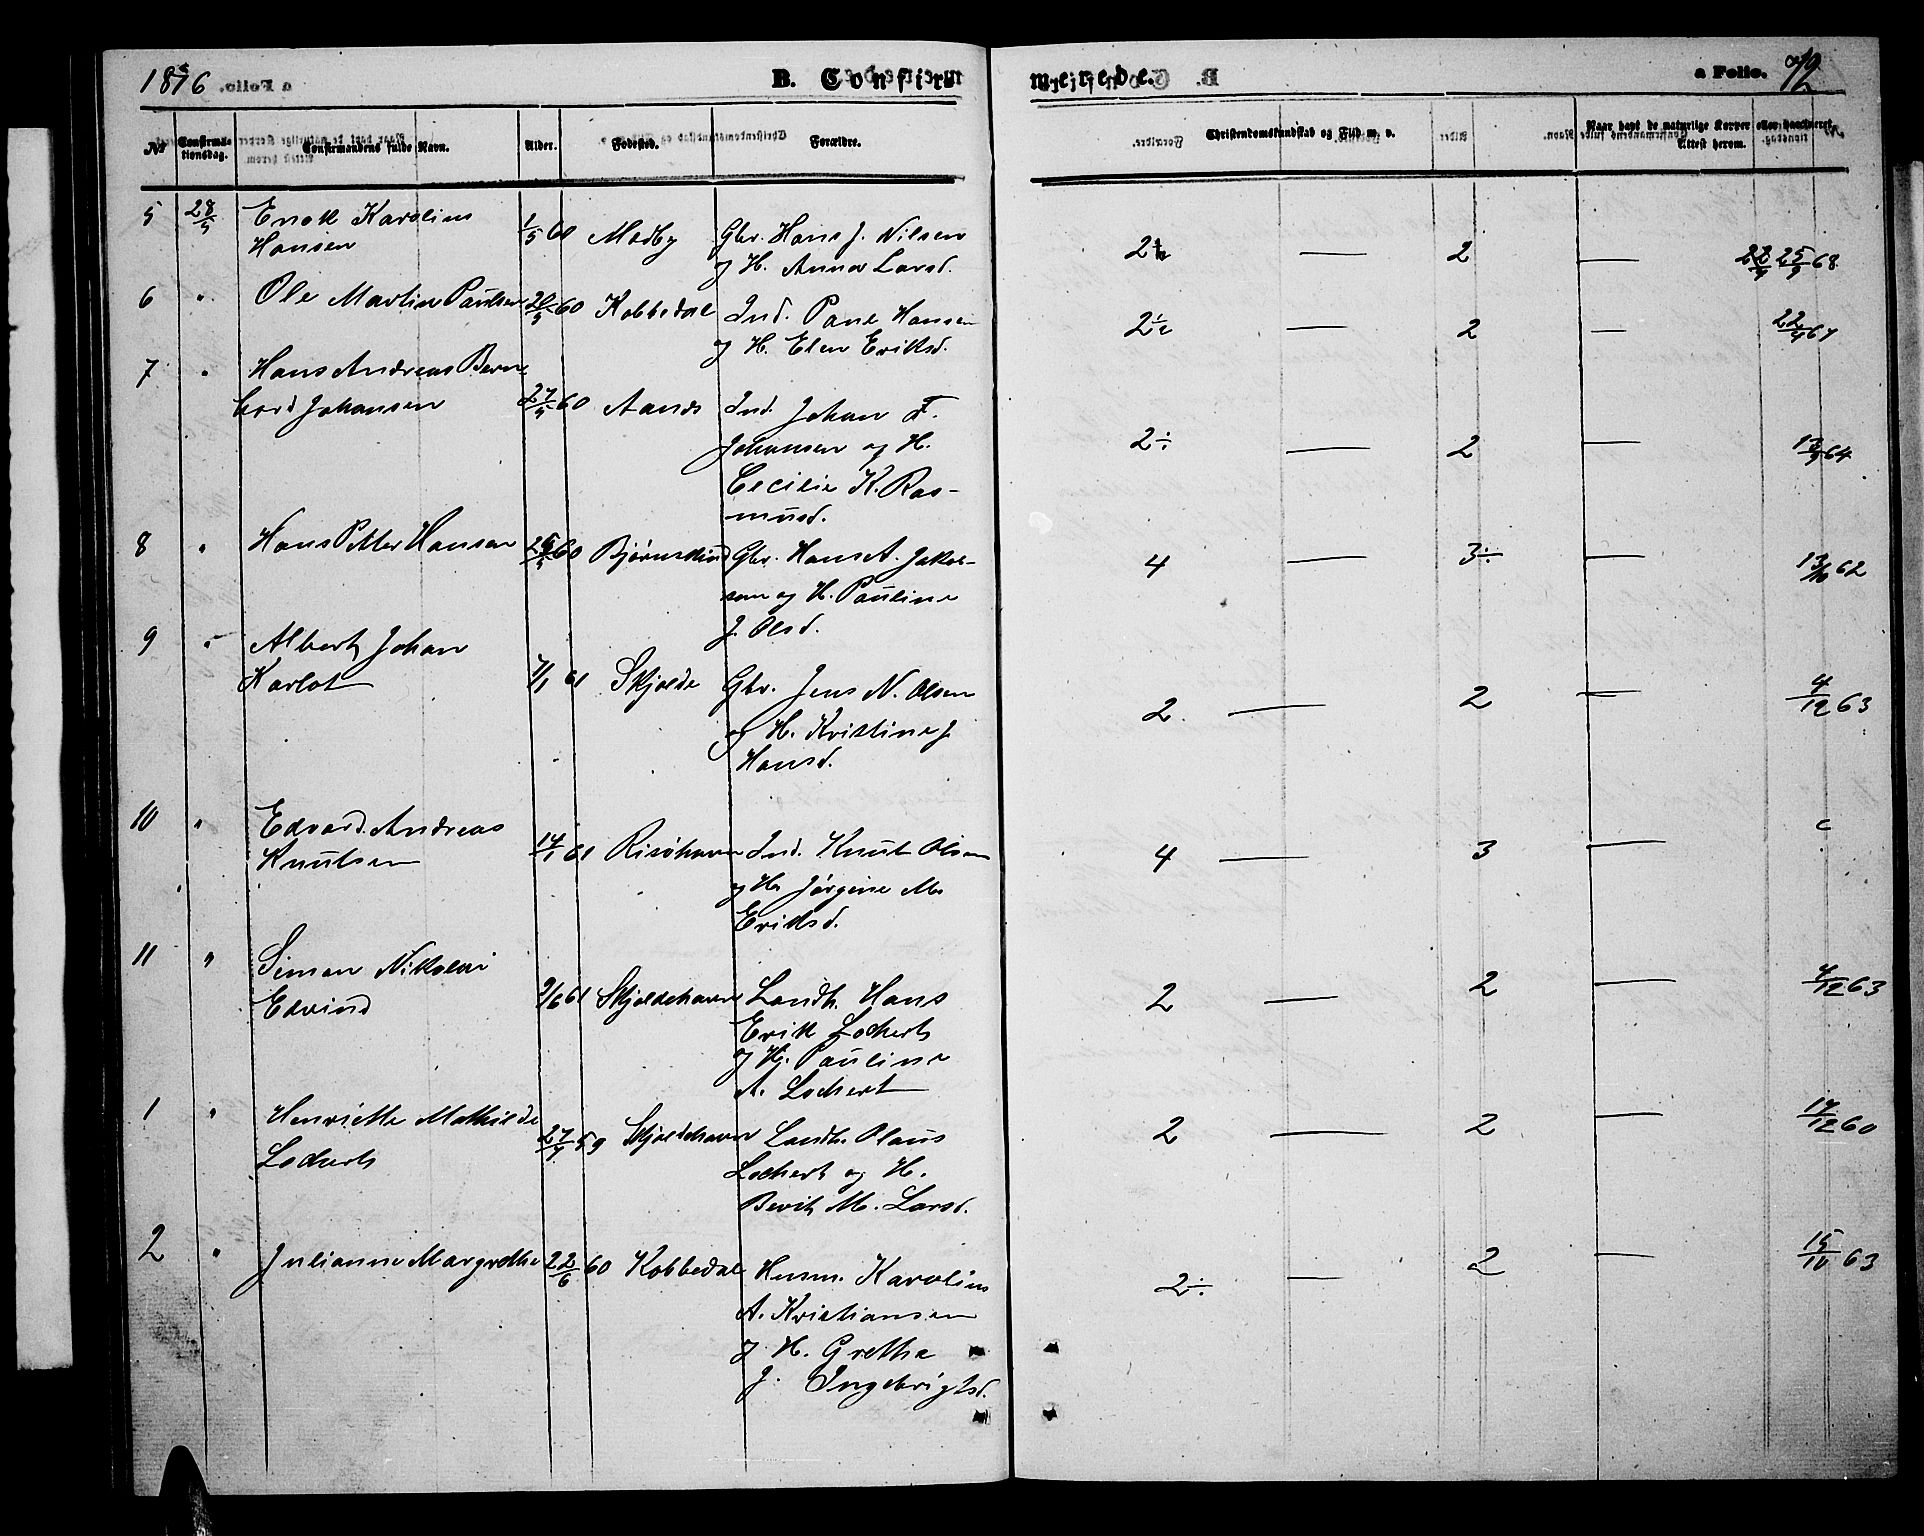 1876
B. Confirmerede.
a Folio. 72
No Confirmationsdag. Confirmandens fulde Navn. Alder. Fødested. Forældre. Christendomskundskab og Flid m. v. Naar havt de naturlige Kopper eller vaccineret. Attest herom.
5 28/5 Enok Karolius
Hansen 1/5 60 Medby Gbr. Hans J. Nilsen
og H. Anna Larsd. 2 — 2 — 25/9 68
6 " Ole Martin Paulsen 20/5 60 Kobbedal Ind. Pane Hansen
og H. Elen Eriksd. 2 — 2 — 22/9 67
7 " Hans Andreas Bern
hard Johansen 27/5 60 Aanes Ind. Johan F.
Johansen og H.
Cecilie K. Ras-
musd. 2÷ — 2 — 13/9 64
8 " Hans Petter Hansen 26/5 60 Bjørnskind Gbr. Hans A. Jakob-
sen og H. Pauline
J. Olsd. 4 — 3÷ — 13/10 62
9 " Albert Johan
Karlot 7/1 61 Skjolde Gbr. Jens N. Olsen
og H. Kristine J.
Hansd. 2. — 2 — 4/12 63
10 " Edvard Andreas
Knutsen 14/1 61 Risøhavn Ind. Knut Olsen
og H. Jørgine M.
Eriksd. 4 — 3 —
11 " Simon Nikolai
Edvind 9/6 61 Skjoldehavn Landh. Hans
Erik Lochert
og H. Pauline
A. Lochert 2 — 2 — 4/12 63
1 " Henriette Mathilde
Lochert 27/4 59 Skjoldehavn Landh. Olaus
Lochert og H.
Berit M. Larsd. 2 — 2 — 17/12 60
2 " Julianne Margrethe 22/6 60 Kobbedal Husm. Karolius
A. Kristiansen
og H. Grethe
J. Ingebrigtsd. 2÷ — 2 — 15/10 63